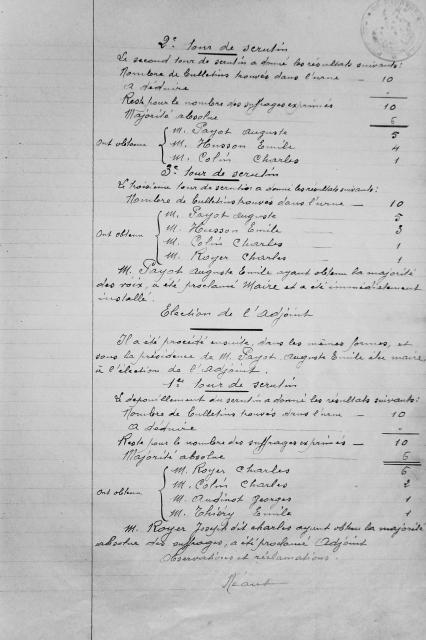 2e tour de scrutin
Le second tour de scrutin a donné les résultats suivants:
Nombre de bulletins trouvés dans l'urne — 10
A déduire -
Reste pour le nombre des suffrages exprimés 10
Majorité absolue 6
M. Payot Auguste 5
Ont obtenu { M. Husson Emile 4
M. Colin Charles 1
3e tour de scrutin
Le troisième tour de scrutin a donné les résultats suivants:
Nombre de bulletins trouvés dans l'urne — 10
M. Payot Auguste 5
Ont obtenu { M. Husson Emile 3
M. Colin Charles 1
M. Royer Charles 1
M. Payot Auguste Emile ayant obtenu la majorité
des voix, a été proclamé Maire et a été immédiatement
installé.
Election de l'Adjoint
Il a été procédé ensuite, dans les mêmes formes, et
sous la présidence de M. Payot Auguste Emile élu maire,
à l'élection de l'adjoint.
1er tour de scrutin
Le dépouillement du scrutin a donné les résultats suivants:
Nombre de bulletins trouvés dans l'urne — 10
A déduire -
Reste pour le nombre des suffrages exprimés — 10
Majorité absolue 6
M. Royer Charles 6
M. Colin Charles 2
Ont obtenu { M. Audinot Georges 1
M. Thiéry Emile 1
M. Royer Joseph dit Charles ayant obtenu la majorité
absolue des suffrages, a été proclamé Adjoint
Observations et réclamations.
Néant